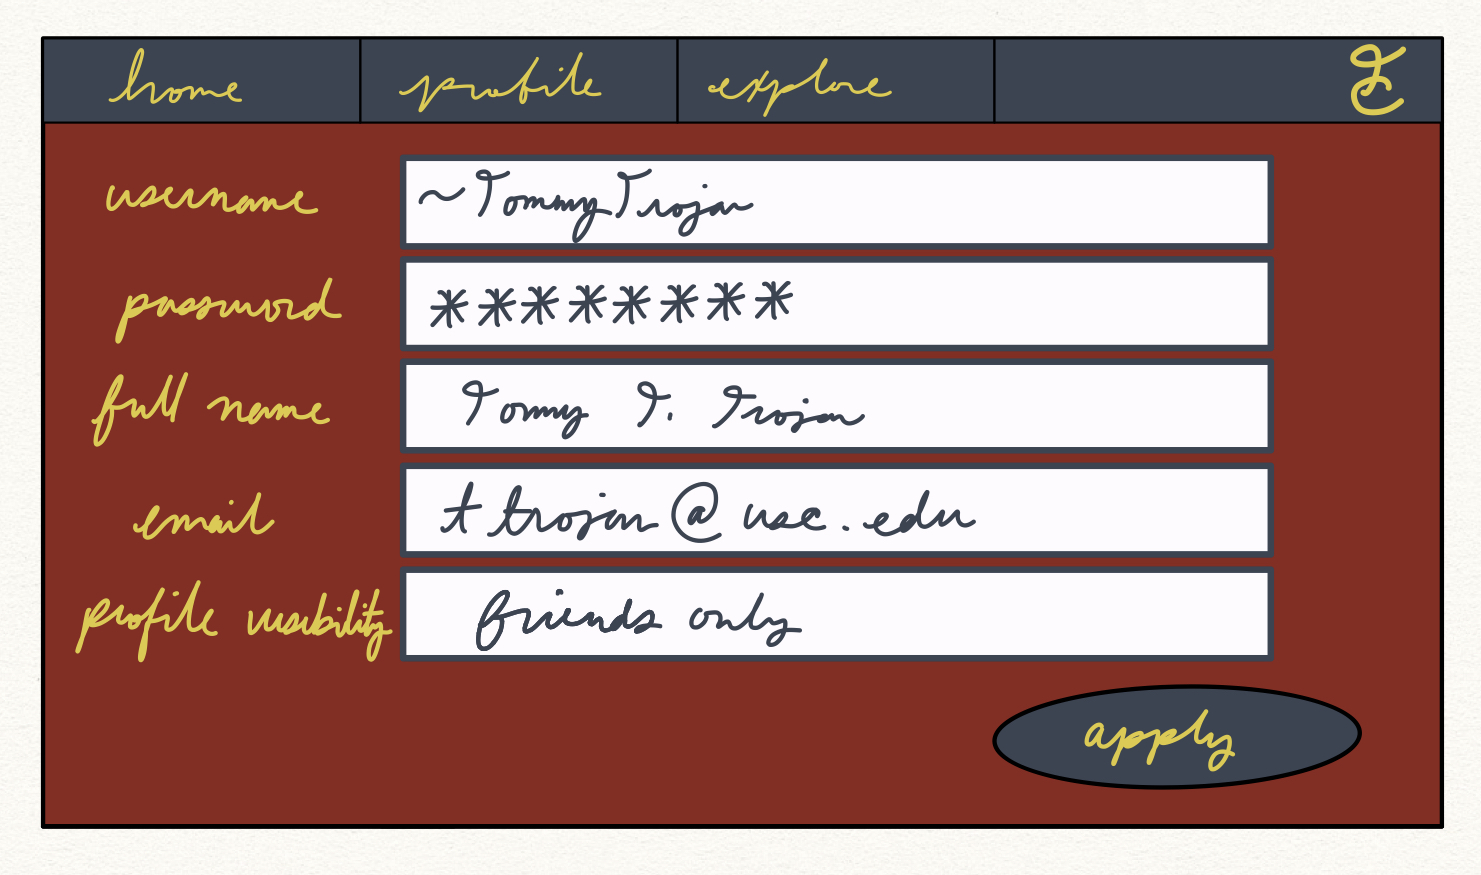 home profile explore
username ~TommyTrojan
password ********
full name Tommy T. Trojan
email ttrojan@usc.edu
profile visibility friends only
apply